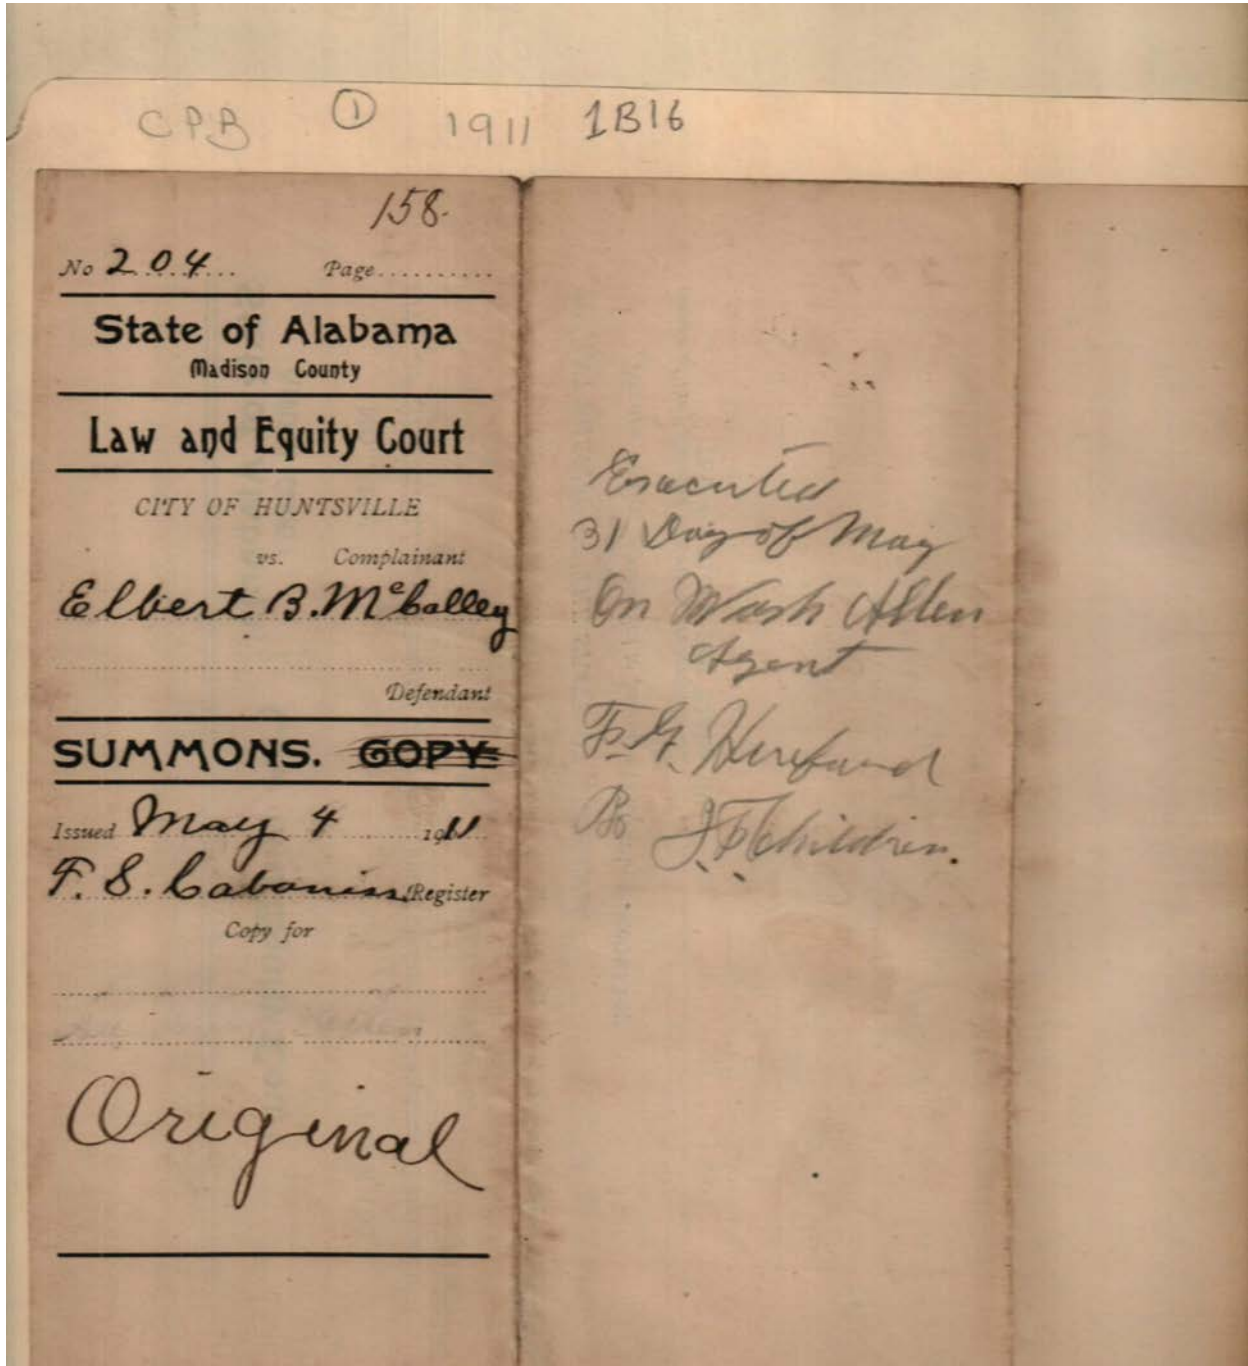 CPB ① 1911 1B16
158.
No 204 Page
State of Alabama
Madison County
Law and Equity Court
CITY OF HUNTSVILLE
vs. Complainant
Elbert B. McCalley
Defendant
SUMMONS. COPY
Issued May 4 1911
F. S. Cabaniss Register
Copy for
Original
Executed
31 Day of May
On Wash Allen
Agent
F. G. Hereford
By J F Childress.